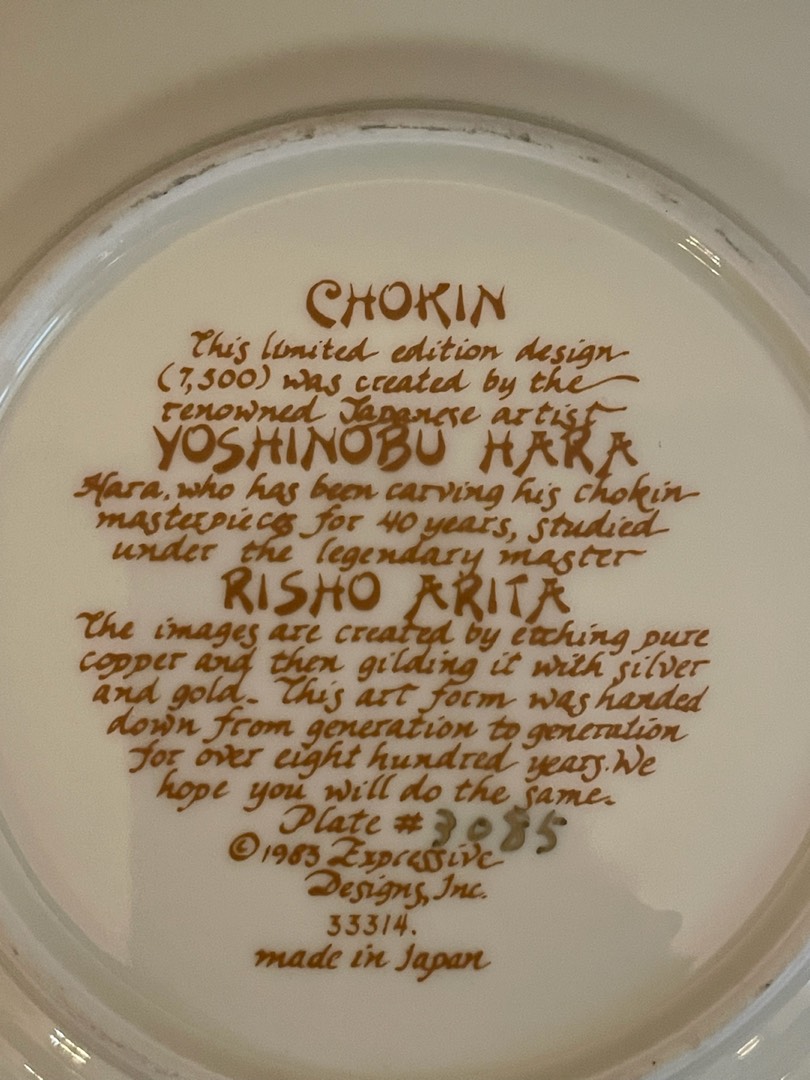 CHOKIN
This limited edition design
(7,500) was created by the
renowned Japanese artist
YOSHINOBU HARA
Hara, who has been carving his chokin
masterpieces for 40 years, studied
under the legendary master
RISHO ARITA
The images are created by etching pure
copper and then gilding it with silver
and gold. This art form was handed
down from generation to generation
for over eight hundred years. We
hope you will do the same.
Plate # 3085
©1983 Expressive
Designs, Inc.
33314.
made in Japan